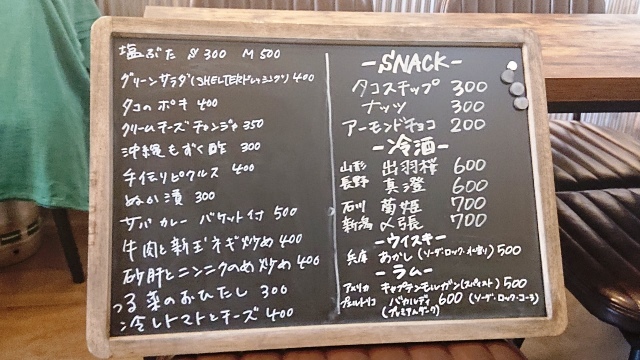 塩ぶた S 300 M 500
グリーンサラダ(SHELTERドレッシング) 400
タコのポキ 400
クリームチーズチャンジャ 350
沖縄もずく酢 300
手作りピクルス 400
ぬか漬 300
サバカレー バケット付 500
牛肉と新玉ネギ炒め 400
砂肝とニンニクのめ炒め 400
つる菜のおひたし 300
冷しトマトとチーズ 400
-SNACK-
タコスチップ 300
ナッツ 300
アーモンドチョコ 200
-冷酒-
山形 出羽桜 600
長野 真澄 600
石川 菊姫 700
新潟 〆張 700
-ウイスキー-
兵庫 あかし(ソーダ・ロック・水割り) 500
-ラム-
アメリカ キャプテンモルガン(スパイスト) 500
プエルトリコ バカルディ 600 (ソーダ・ロック・コーラ)
(プレミアムダーク)